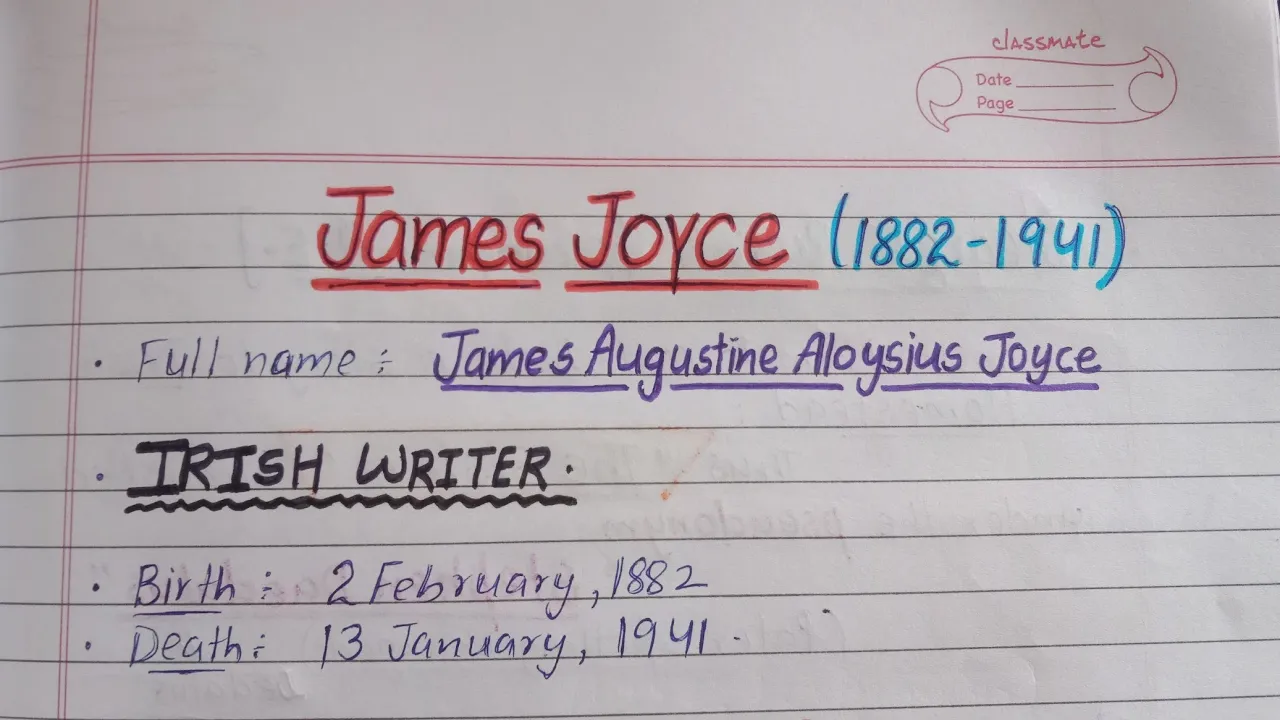 classmate
Date
Page
James Joyce (1882-1941)
• Full name : James Augustine Aloysius Joyce
• IRISH WRITER.
• Birth : 2 February, 1882
• Death : 13 January, 1941.